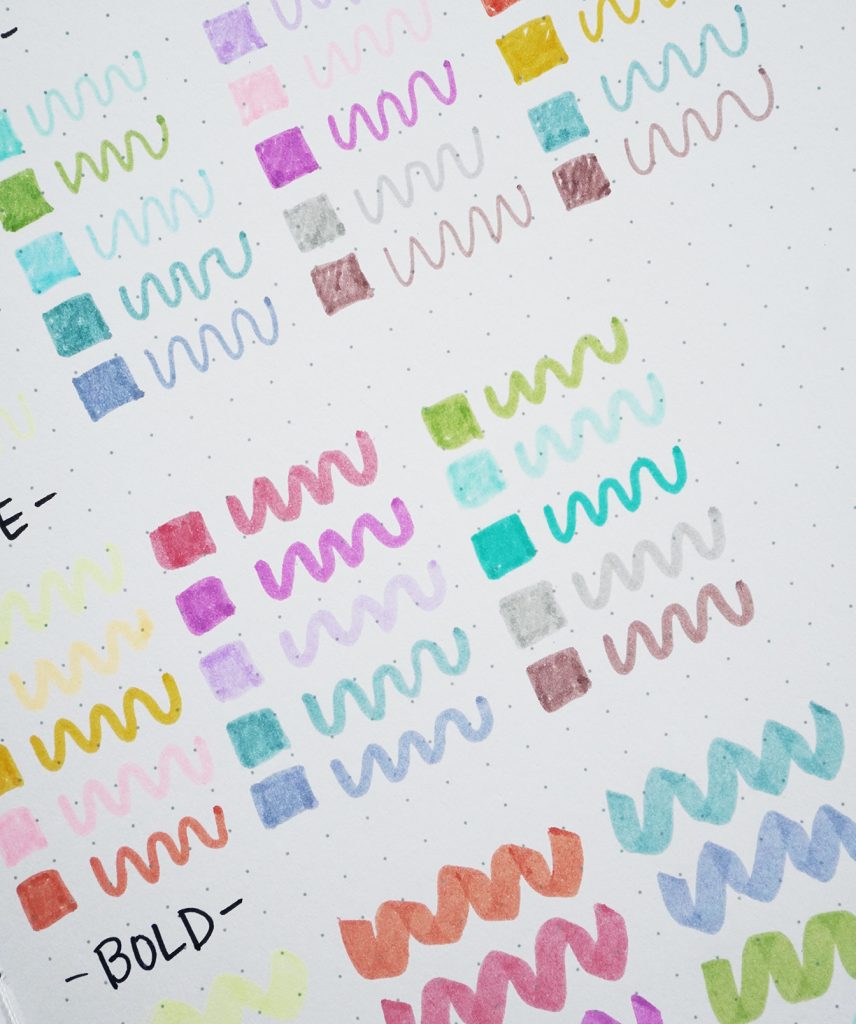 E-
-BOLD-